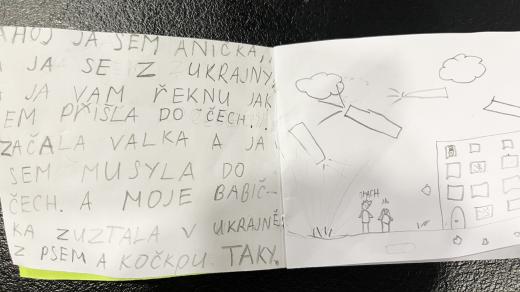 AHOJ JA SEM ANIČKA,
JA SE Z UKRAJNY,
JA VAM ŘEKNU JAK
SEM PŘIŠLA DO ČECH.
ZAČALA VALKA A JA
SEM MUSYLA DO
ČECH. A MOJE BABIČ-
KA ZUZTALA V UKRAJNĚ
Z PSEM A KOČKOU. TAKY.
JA